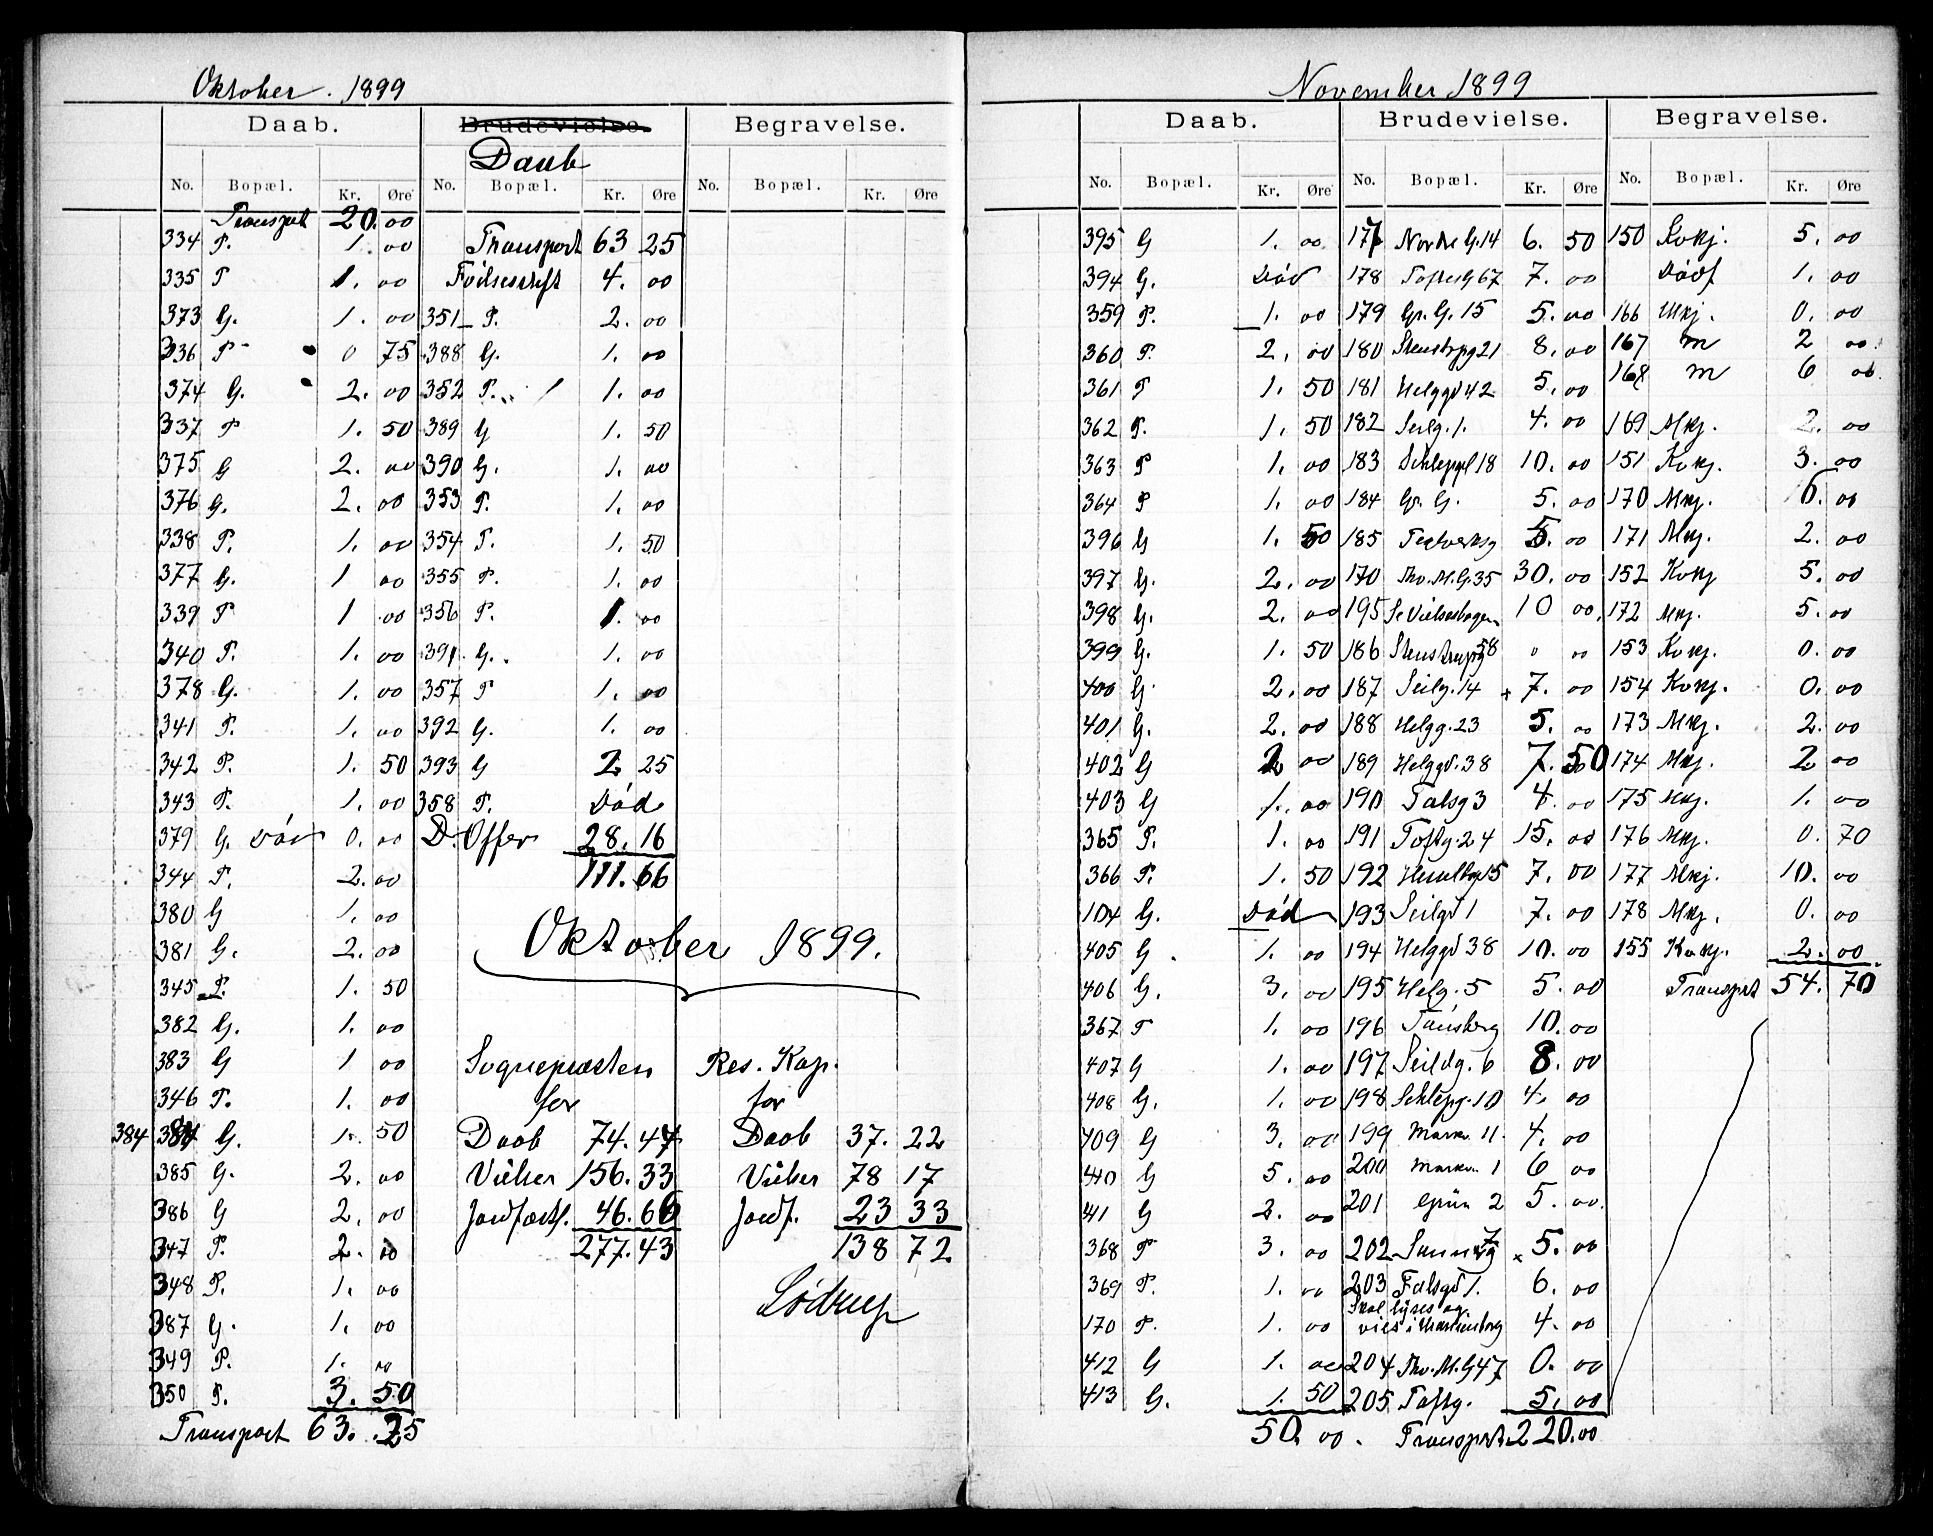 Oktober. 1899
Daab. Brudevielse. Begravelse.
Daab
No. Bopæl. Kr. Øre No. Bopæl. Kr. Øre No. Bopæl. Kr. Øre
Transport 20. 00
334 P. 1. 00 Transport 63 25
335 P 1. 00 4. 00
373 G. 1. 00 351 P. 2. 00
336 P 0 75 388 G. 1. 00
374 G. 2. 00 352 P. 1. 00
337 P 1. 50 389 G 1. 50
375 G 2. 00 390 G. 1. 00
376 G. 2. 00 353 P. 1. 00
338 P. 1. 00 354 P. 1. 50
377 G. 1 00 355 P. 1. 00
339 P 1 00 356 P. 1. 00
340 P. 1. 00 391 G. 1. 00
378 G. 1. 00 357 P 1. 00
341 P. 1. 00 392 G. 1. 00
342 P. 1. 50 393 G 2 25
343 P. 1. 00 358 P. Død
379 G. Død 0. 00 D. Offer 28. 16
344 P. 2. 00 111. 66
380 G 1. 00
381 G. 2. 00
345 P. 1. 50
382 G. 1. 00
383 G 1 00
346 P. 1. 00
384 384 G. 1. 50
385 G. 2. 00
386 G 2. 00
347 P. 2. 00
348 P. 1. 00
387 G. 1. 00
349 P. 1. 00
350 P. 3. 50
Transport 63. 25
Oktober 1899.
Sognepræsten Res. Kap.
for for
Daab 74. 47 Daab 37. 22
Vielser 156. 33 Vielser 78 17
Jordfæstl. 46. 66 Jordf. 23 33
277. 43 138 72
Lødrup
November 1899
Daab. Brudevielse. Begravelse.
No. Bopæl. Kr. Øre No. Bopæl. Kr. Øre No. Bopæl. Kr. Øre
395 G 1. 00 177 Nordre G. 14 6. 50 150 Kvkj. 5. 00
394 G. Død 178 Tofte G 67 7. 00 Dødf 1. 00
359 P. 1. 00 179 Gr. G. 15 5. 00 166 Mkj. 0. 00
360 P. 2. 00 180 Stenstrpg 21 8. 00 167 m 2 00
361 P 1. 50 181 Helggd 42 5. 00 168 m 6 00
362 P. 1. 50 182 Seilg. 1. 4. 00 169 Mkj. 2. 00
363 P 1. 00 183 Schleppgl 18 10. 00 151 Kvkj. 3. 00
364 P 1. 00 184 Gr. G. 5. 00 170 Mkj. 6. 00
396 G 1. 50 185 5. 00 171 Mkj. 2. 00
397 G. 2. 00 170 Thv. M. G. 35 30. 00 152 Kvkj 5. 00
398 G. 2. 00 195 Se Vielsesbogen 10 00 172 Mkj. 5. 00
399 G. 1. 50 186 Stenstrupg 58 0 00 153 Kvkj. 0. 00
400 G. 2. 00 187 Seilg. 14 x 7. 00 154 Kvkj. 0. 00
401 G. 2. 00 188 Helgg. 23 5. 00 173 Mkj. 2. 00
402 G 2 00 189 Helggd. 38 7. 50 174 Mkj. 2 00
403 G 1. 00 190 Falsg 3 4. 00 175 Mkj. 1. 00
365 P. 1. 00 191 Toftg. 24 15. 00 176 Mkj. 0. 70
366 P. 1. 50 192 7. 00 177 Mkj. 10. 00
104 G. Død 193 Seilgd 1 7. 00 178 Mkj. 0. 00
405 G. 1. 00 194 Helggd 38 10. 00 155 Kvkj. 2. 00
406 G. 3. 00 195 Helg. 5 5. 00 Transport 54. 70
367 P 1. 00 196 Tønsberg 10. 00
407 G 1. 00 197 Seildg. 6 8. 00
408 G. 1. 00 198 Schlepg. 10 4. 00
409 G 3. 00 199 Markv. 11. 4. 00
410 G 5. 00 200 Markv. 1 6 00
411 G 2. 00 201 Grün 2 5. 00
368 P 3. 00 202 Sannerg 7 x 5. 00
369 P. 1. 00 203 Falsgd 1. 6. 00
170 P. 1. 00 Skal lyses og
vies i 4. 00
412 G 1. 00 204 Thv. M. G 47 0. 00
413 G. 1. 50 205 Toftg. 5. 00
50. 00. Transport 220. 00